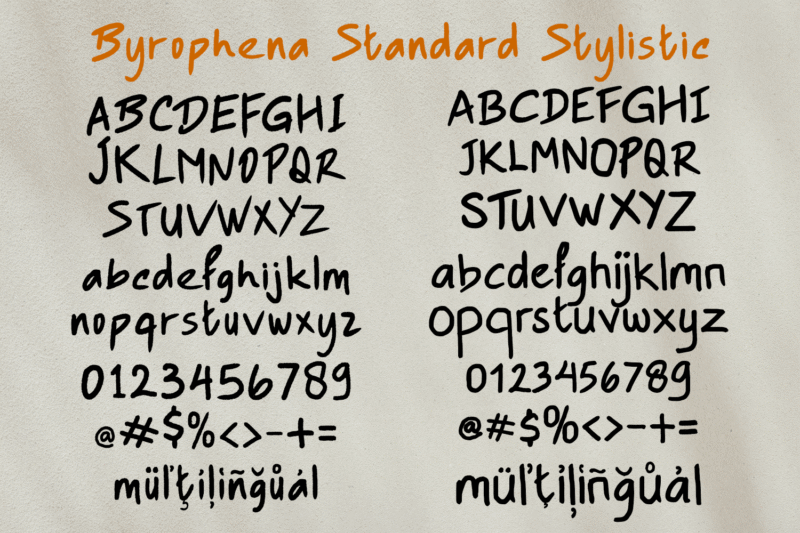 Byrophena Standard Stylistic
ABCDEFGHI
JKLMNOPQR
STUVWXYZ
abcdefghijklm
nopqrstuvwxyz
0123456789
@#$%<>-+=
müľţíļiñğůȧl
ABCDEFGHI
JKLMNOPQR
STUVWXYZ
abcdefghijklmn
opqrstuvwxyz
0123456789
@#$%<>-+=
müľţíļiñğůȧl